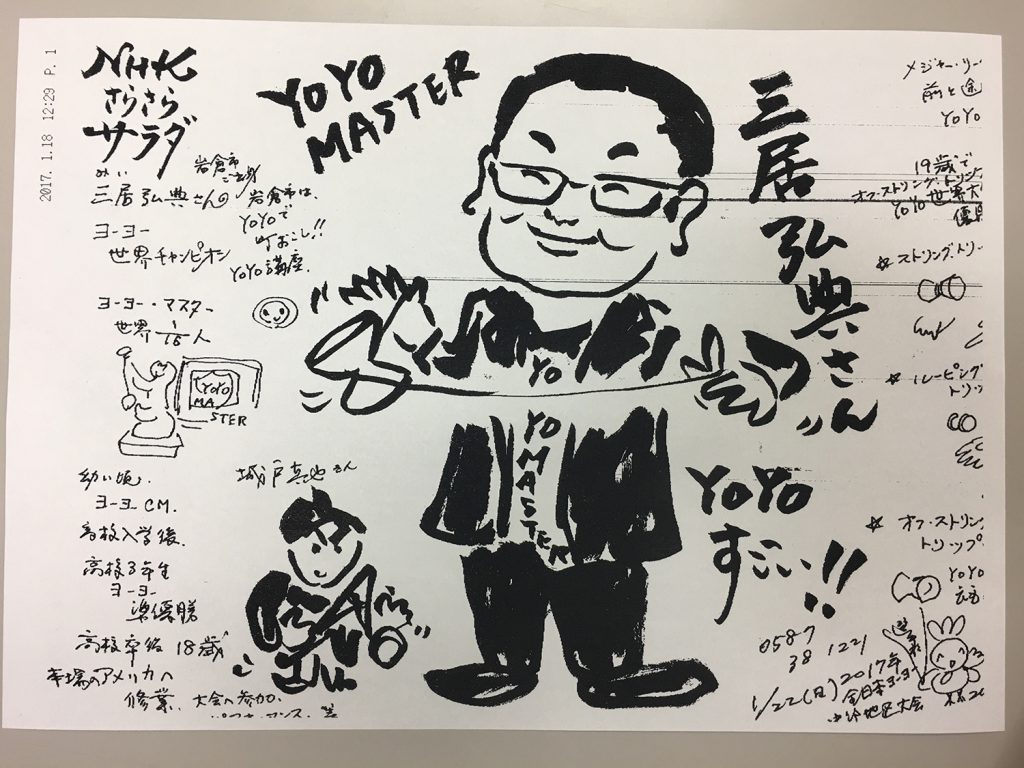 2017. 1.18 12:29 P. 1
NHK
さらさら
サラダ
YOYO
MASTER
みい
三居弘典さんの
ヨーヨー
世界チャンピオン
岩倉市
岩倉市は、
YOYOで
町おこし!!
YOYO講座、
ヨーヨー・マスター
世界 1/15人
YOYO
MA
STER
幼い頃、
ヨーヨー CM.
高校入学後、
高校3年生
ヨーヨー
準優勝
高校卒後 18歳
本場のアメリカへ
修業、大会へ参加、
城戸真也さん
YO
YO
MASTER
三居弘典さん
YOYO
すごい!!
0587
38 1221
1/22(日)2017年
全日本ヨーヨー
中部地区大会
メジャー・リー
前と途
YOYO
19歳で
オフ・ストリング・トリッ
YOYO世界大
優
☆ ストリング・トリー
☆ ルーピング
トリッ
☆ オフ・ストリン
トリップ
YOYO